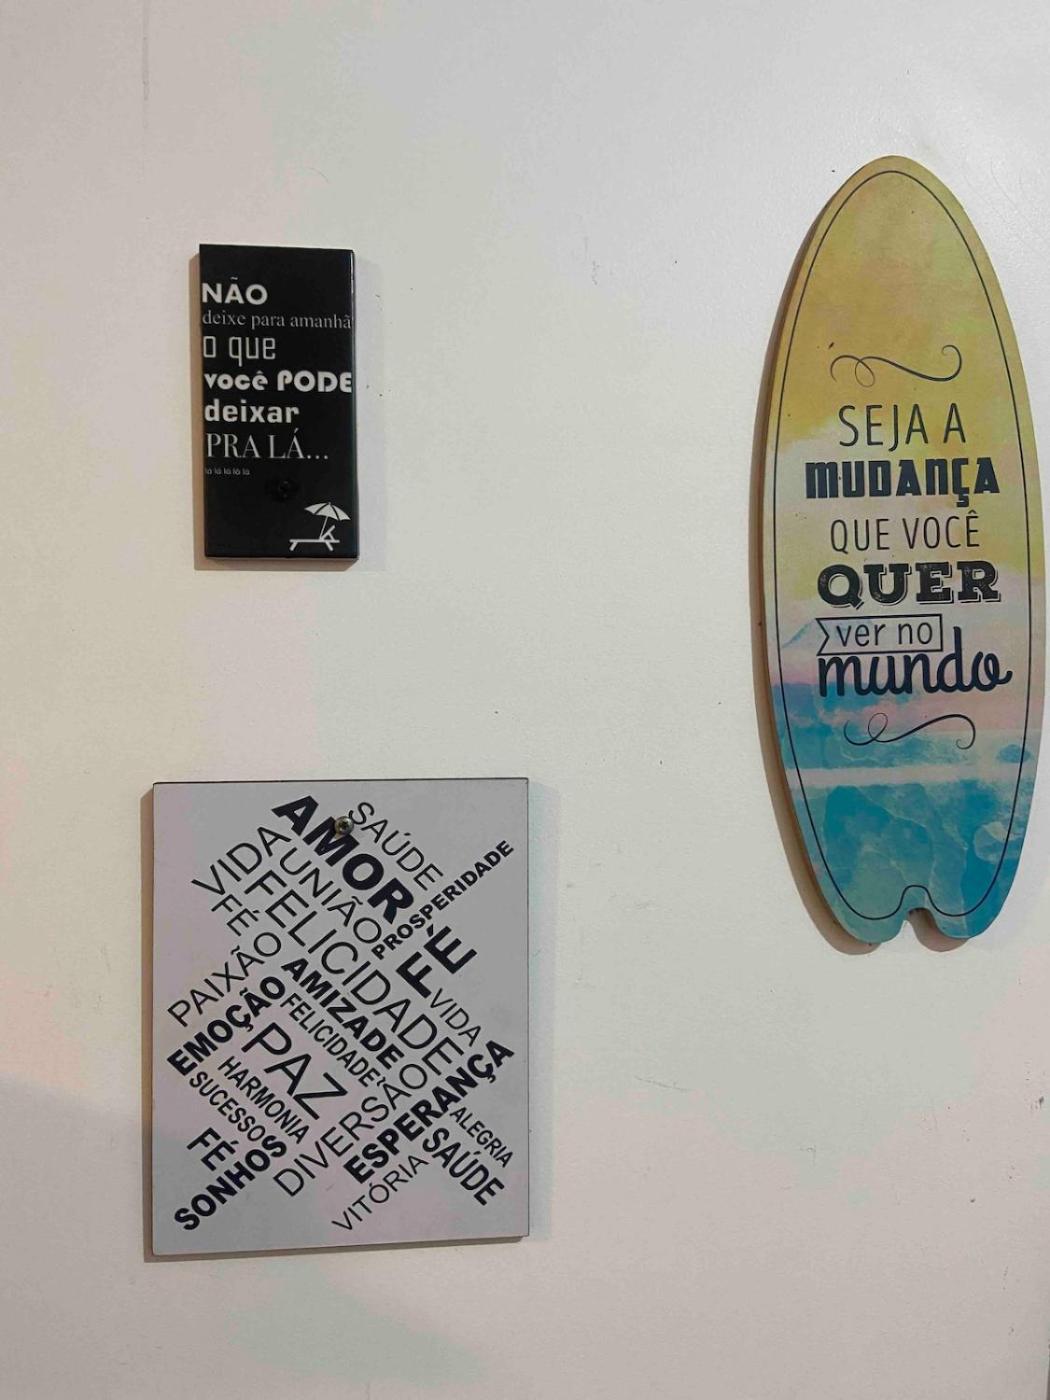 NÃO
deixe para amanhã
o que
você PODE
deixar
PRA LÁ...
lá lá lá lá lá
SEJA A
MUDANÇA
QUE VOCÊ
QUER
ver no
mundo
SAÚDE
AMOR
PROSPERIDADE
VIDA
UNIÃO
FÉ
FELICIDADE
FÉ
PAIXÃO
AMIZADE
VIDA
EMOÇÃO
FELICIDADE
PAZ
HARMONIA
SUCESSO
DIVERSÃO
ESPERANÇA
ALEGRIA
FÉ
SAÚDE
SONHOS
VITÓRIA